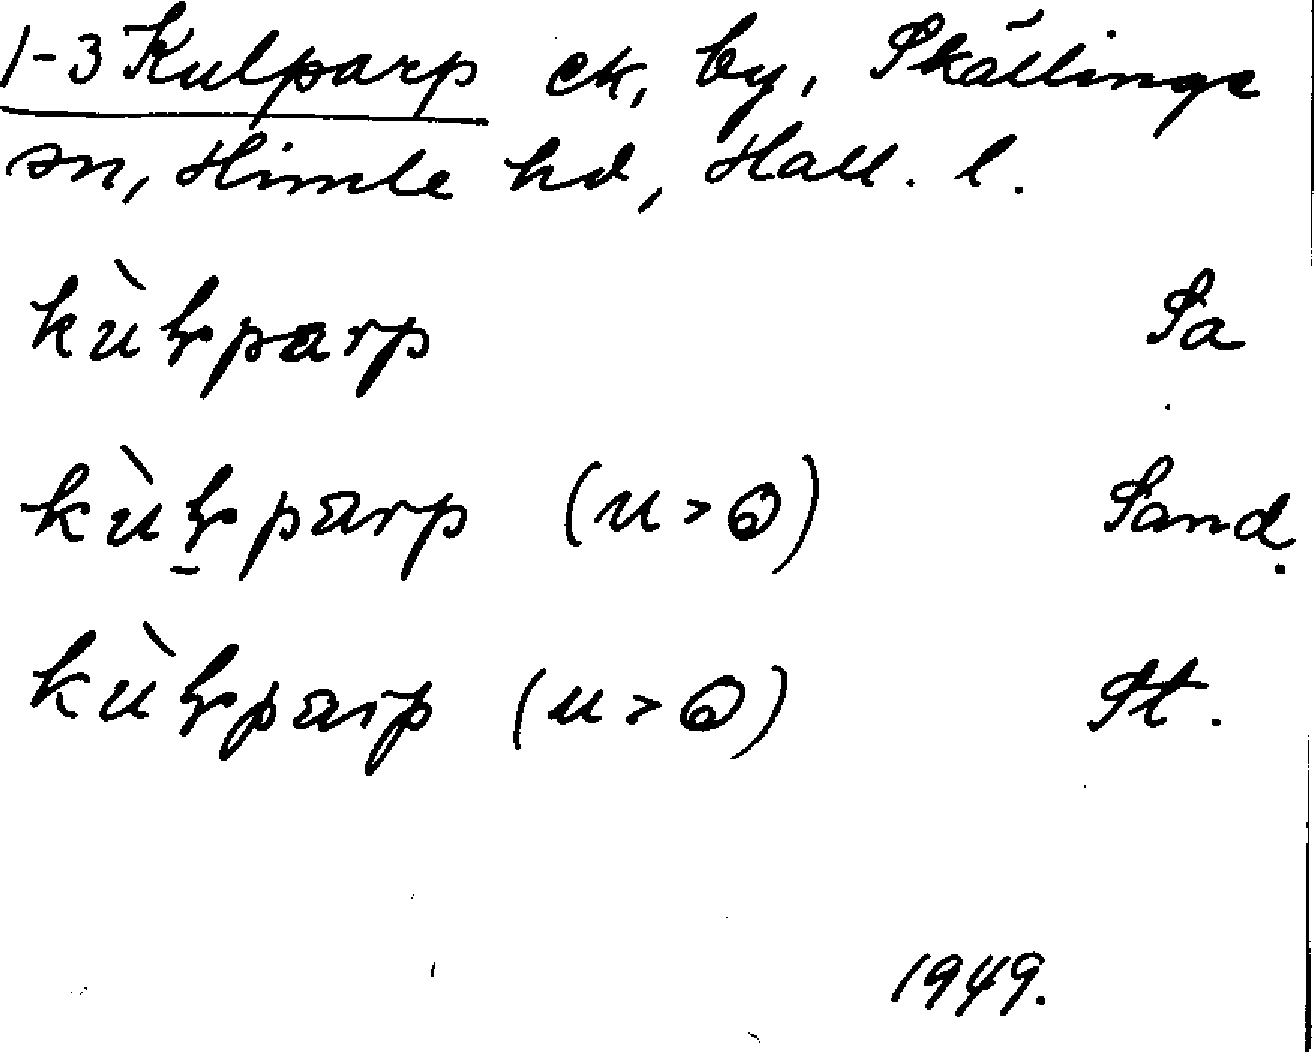 1-3 Kulparp ek, by, Skällinge
sn, Himle hd, Hall. l.
kùlparp Sa
kùlparp (u > ɷ) Sand.
kùlparp (u > ɷ) St.
1949.